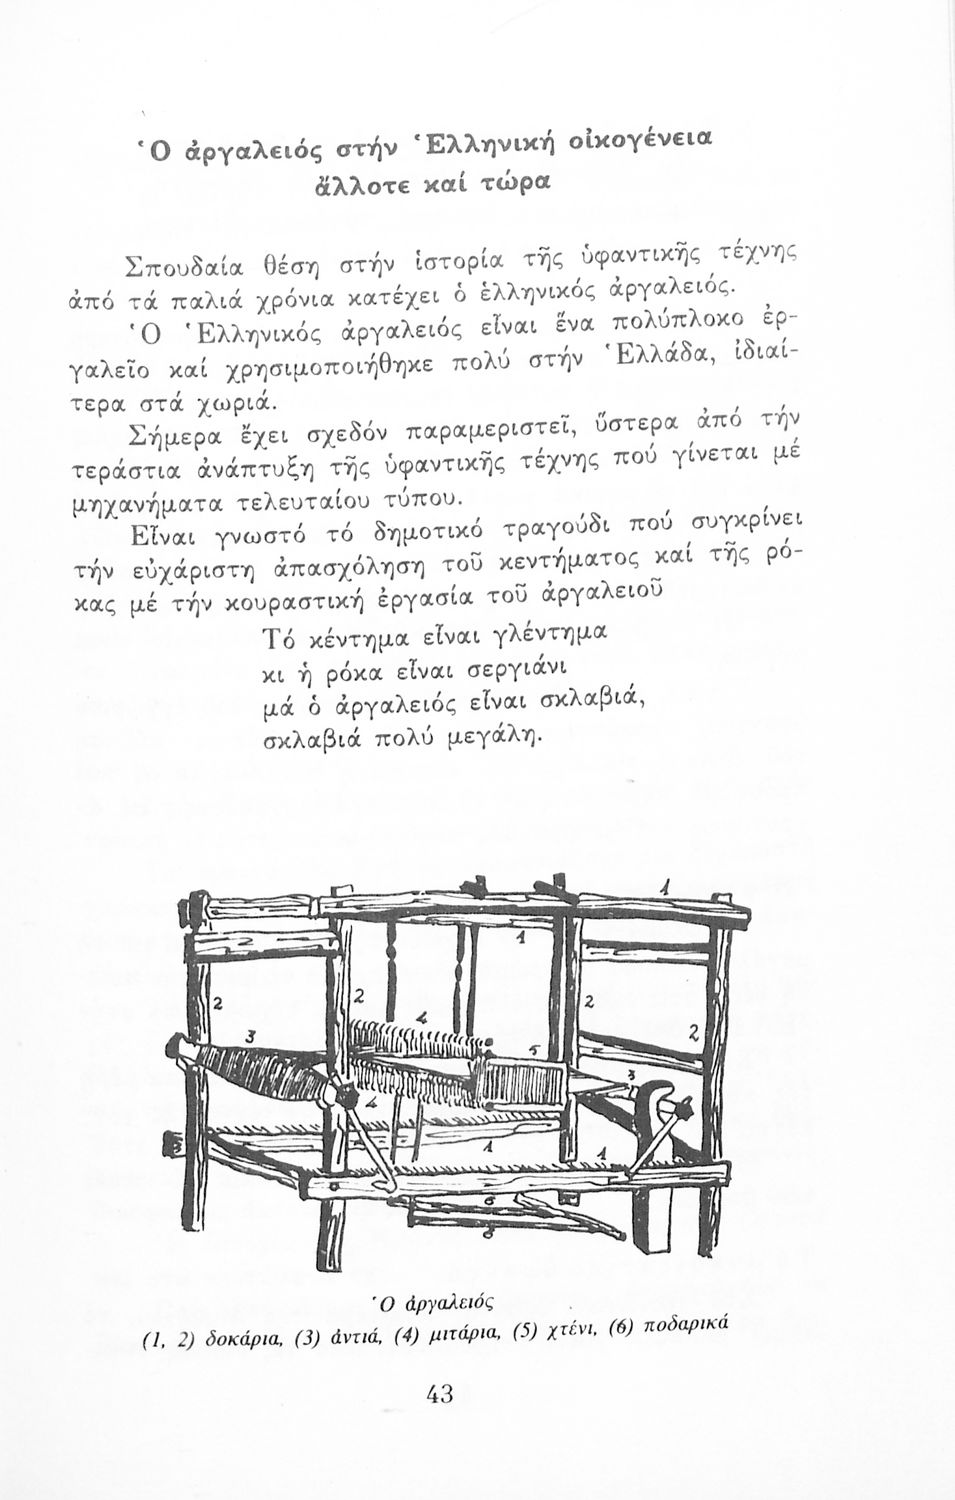 Ὁ ἀργαλειός στήν Ἑλληνική οἰκογένεια
ἄλλοτε καί τώρα
Σπουδαία θέση στήν ἱστορία τῆς ὑφαντικῆς τέχνης
ἀπό τά παλιά χρόνια κατέχει ὁ ἑλληνικός ἀργαλειός.
Ὁ Ἑλληνικός ἀργαλειός εἶναι ἕνα πολύπλοκο ἐρ-
γαλεῖο καί χρησιμοποιήθηκε πολύ στήν Ἑλλάδα, ἰδιαί-
τερα στά χωριά.
Σήμερα ἔχει σχεδόν παραμεριστεῖ, ὕστερα ἀπό τήν
τεράστια ἀνάπτυξη τῆς ὑφαντικῆς τέχνης πού γίνεται μέ
μηχανήματα τελευταίου τύπου.
Εἶναι γνωστό τό δημοτικό τραγούδι πού συγκρίνει
τήν εὐχάριστη ἀπασχόληση τοῦ κεντήματος καί τῆς ρό-
κας μέ τήν κουραστική ἐργασία τοῦ ἀργαλειοῦ
Τό κέντημα εἶναι γλέντημα
κι ἡ ρόκα εἶναι σεργιάνι
μά ὁ ἀργαλειός εἶναι σκλαβιά,
σκλαβιά πολύ μεγάλη.
1
1
2 2 2 2
3 4 5 3
4
1 1
6
6
Ὁ ἀργαλειός
(1, 2) δοκάρια, (3) ἀντιά, (4) μιτάρια, (5) χτένι, (6) ποδαρικά
43